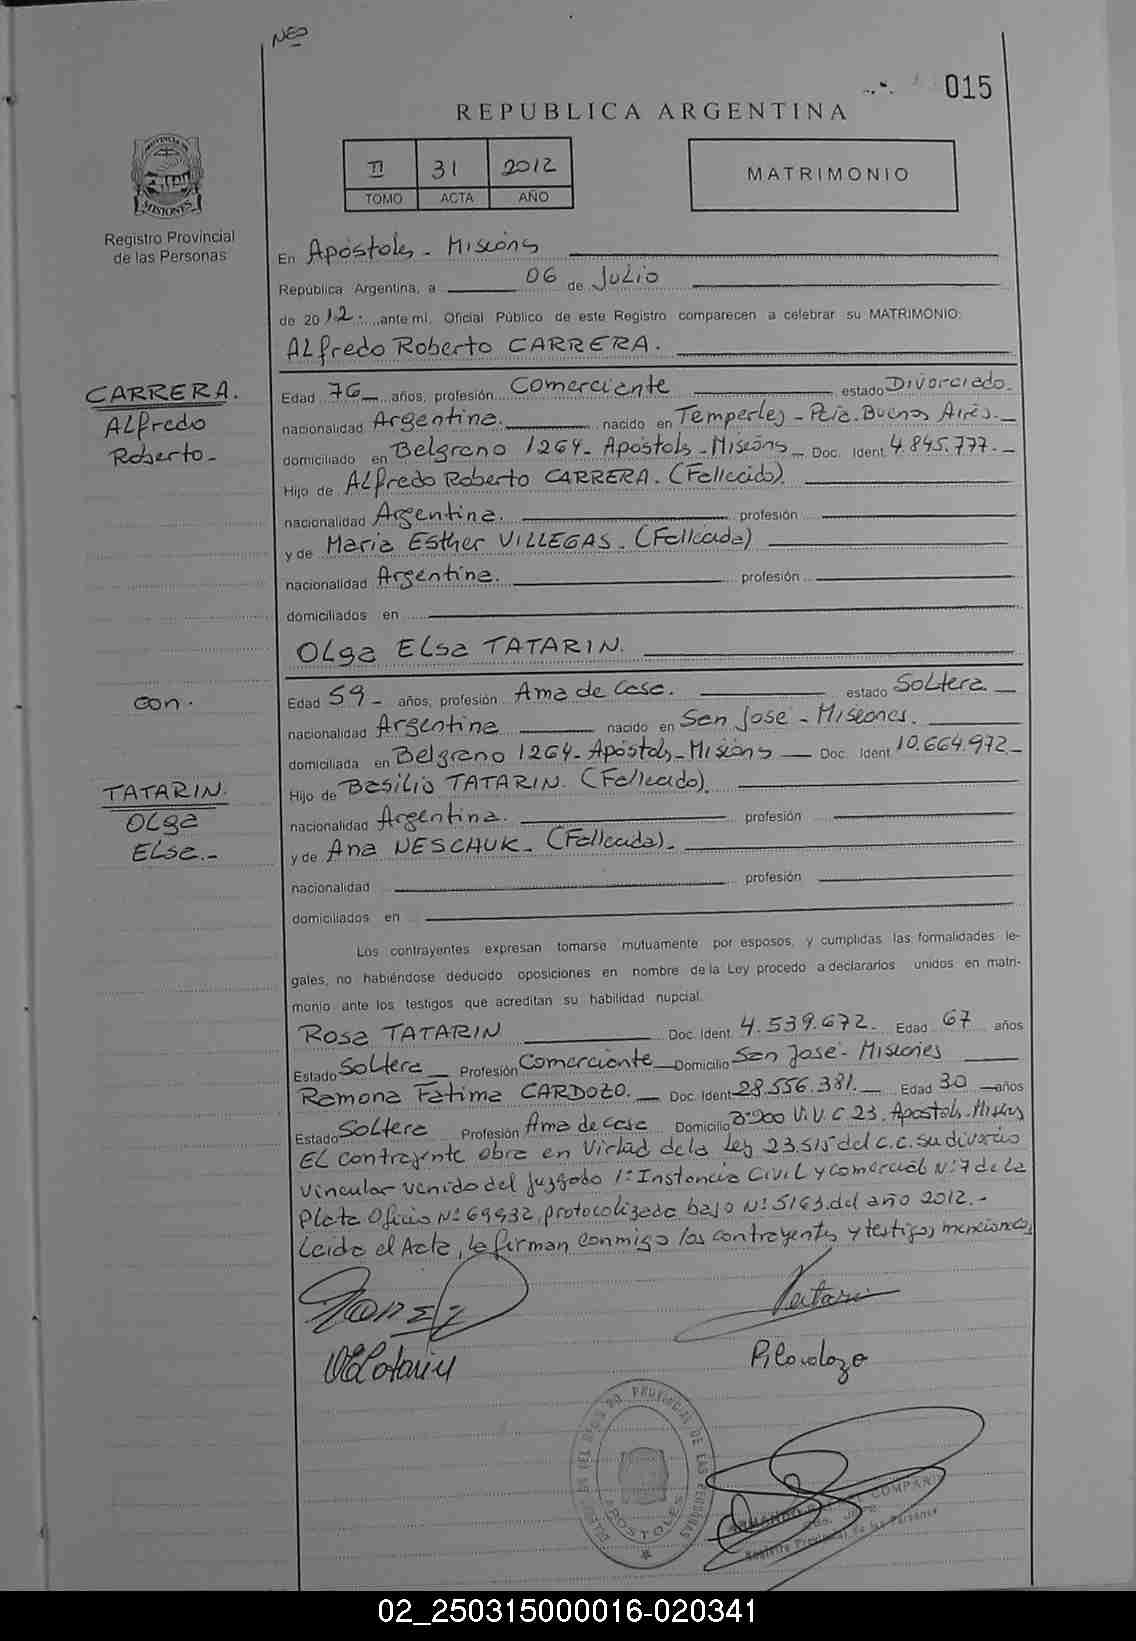 NEO
015
REPUBLICA ARGENTINA
PROVINCIA DE
MISIONES
Registro Provincial
de las Personas
II 31 2012
TOMO ACTA AÑO
MATRIMONIO
En Apóstoles - Misiones
República Argentina, a 06 de Julio
de 2012. ante mí, Oficial Público de este Registro comparecen a celebrar su MATRIMONIO:
Alfredo Roberto CARRERA.
CARRERA.
Alfredo
Roberto -
Edad 76 años, profesión Comerciante estado Divorciado.
nacionalidad Argentina. nacido en Temperley - Pcia. Buenos Aires. -
domiciliado en Belgrano 1264 - Apóstoles - Misiones - Doc. Ident. 4.845.777. -
Hijo de Alfredo Roberto CARRERA. (Fallecido).
nacionalidad Argentina. profesión
y de Maria Esther VILLEGAS. (Fallecida)
nacionalidad Argentina. profesión
domiciliados en
Olga Elsa TATARIN.
con.
Edad 59 - años, profesión Ama de Casa. estado Soltera -
nacionalidad Argentina nacido en San José - Misiones.
domiciliada en Belgrano 1264 - Apóstoles - Misiones - Doc. Ident. 10.664.972 -
TATARIN.
Olga
Elsa. -
Hijo de Basilio TATARIN. (Fallecido).
nacionalidad Argentina. profesión
y de Ana NESCHUK. (Fallecida). -
nacionalidad profesión
domiciliados en
Los contrayentes expresan tomarse mutuamente por esposos, y cumplidas las formalidades le-
gales, no habiéndose deducido oposiciones en nombre de la Ley procedo a declararlos unidos en matri-
monio ante los testigos que acreditan su habilidad nupcial.
Rosa TATARIN Doc. Ident. 4.539.672. Edad 67 años
Estado Soltera Profesión Comerciante Domicilio San José - Misiones
Ramona Fatima CARDOZO. Doc. Ident 28.556.381. Edad 30 años
Estado Soltera Profesión Ama de Casa Domicilio Bº 200 V. V. C 23. Apostoles - Misiones
El contrayente obra en Virtud de la Ley 23.515 del C.C. su divorcio
Vincular venido del Juzgado 1º Instancia Civil y Comercial Nº 7 de La
Plata Oficio Nº 69932, protocolizado bajo Nº 5163 del año 2012. -
Leida el Acta, la firman conmigo los contrayentes y testigos mencionados
Tatarin
OETatarin
RCardozo
PROVINCIAL DE LAS PERSONAS
APOSTOLES
Registro Provincial de las Personas
02_250315000016-020341